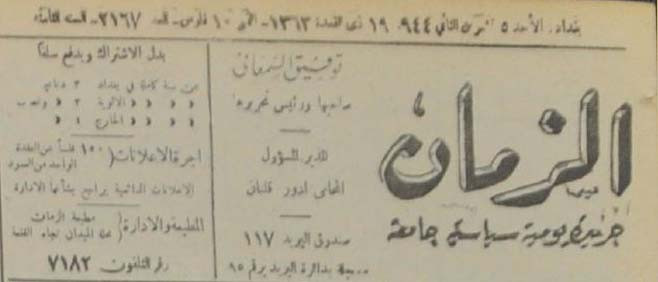 بغداد، الأحد ٥ تشرين الثاني ٩٤٤، ١٩ ذي القعدة ١٣٦٣ - الثمن ١٠ فلوس - العدد ٢١٦٧ - السنة الثامنة
الزمان
جريدة يومية سياسية جامعة
توفيق السمعاني
صاحبها ورئيس تحريرها
المدير المسؤول
المحامي ادور قليان
صندوق البريد ١١٧
مسجلة بدائرة البريد برقم ٩٥
بدل الاشتراك ويدفع سلفا
عن سنة كاملة في بغداد ٢ دنانير
« « « الالوية ٢ « ونصف
« « « الخارج ٤ «
اجرة الاعلانات ( ١٥٠ فلساً عن العقدة
الواحد من العمود
الاعلانات الدائمية يراجع بشأنها الادارة
المطبعة والادارة ( مطبعة الزمان
محلة الميدان تجاه القلعة
رقم التلفون ٧١٨٢